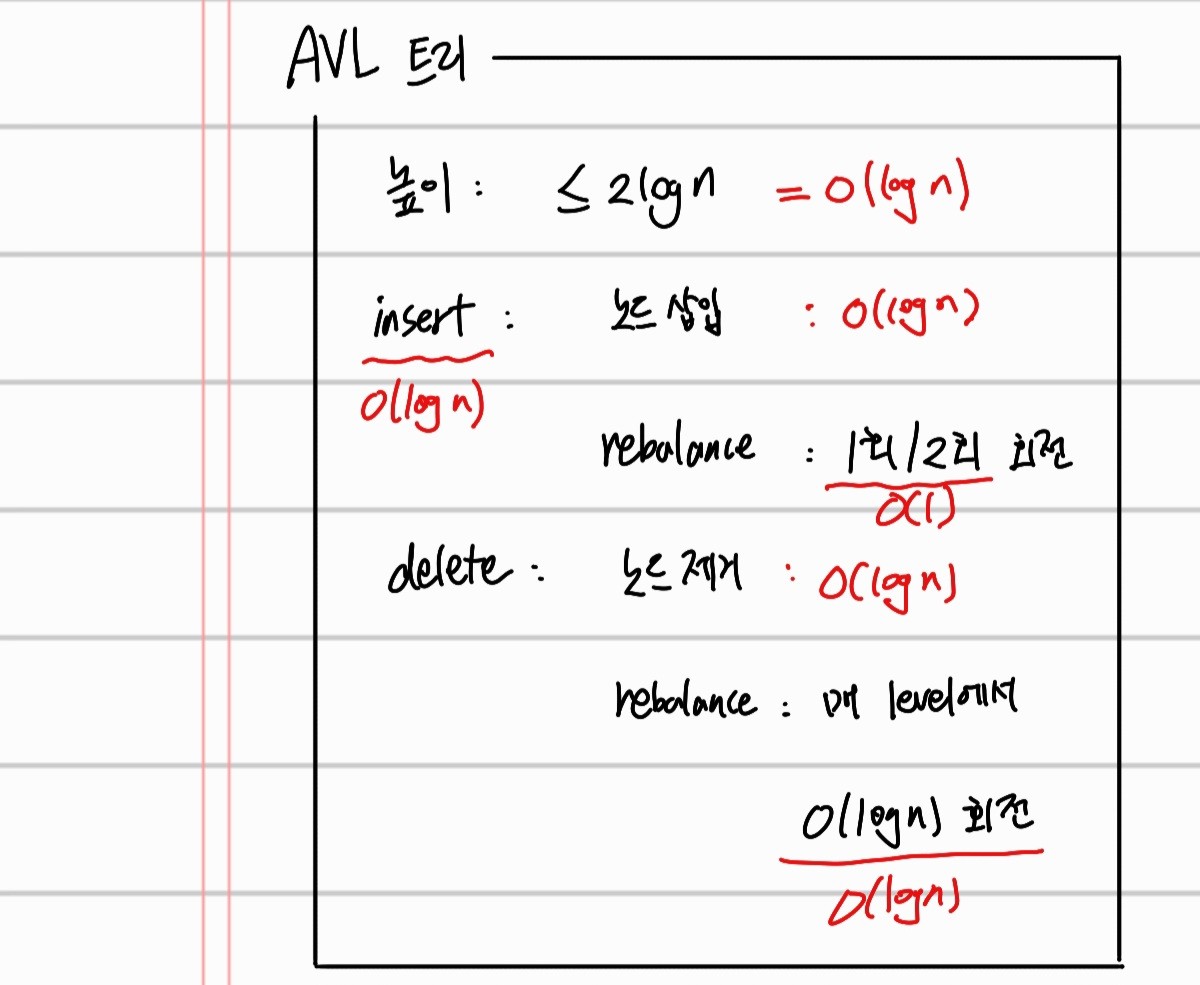 AVL 트리
높이 : ≤ 2logn = O(log n)
insert : 노드 삽입 : O(log n)
O(log n)
rebalance : 1회/2회 회전
O(1)
delete : 노드 제거 : O(log n)
rebalance : 매 level에서
O(logn) 회전
O(logn)